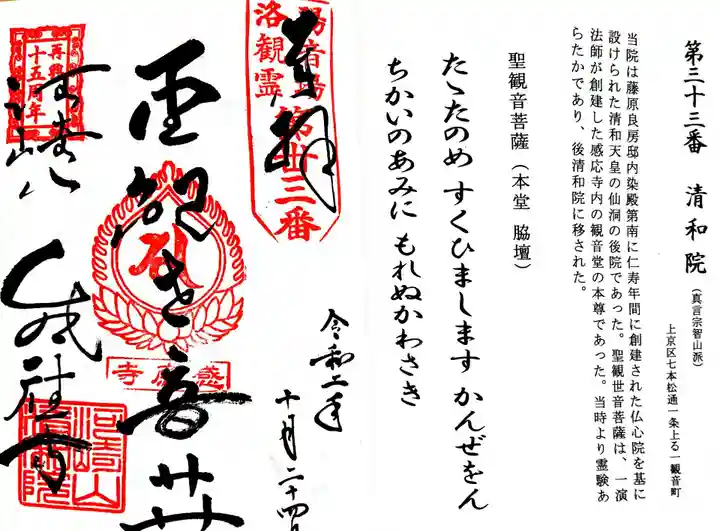 第三十三番 清和院
(真言宗智山派)
上京区七本松通一条上る一観音町
当院は藤原良房邸内染殿第南に仁寿年間に創建された仏心院を基に
設けられた清和天皇の仙洞の後院であった。聖観世音菩薩は、一演
法師が創建した感応寺内の観音堂の本尊であった。当時より霊験あ
らたかであり、後清和院に移された。
聖観音菩薩(本堂 脇壇)
たゝたのめ すくひまします かんぜをん
ちかいのあみに もれぬかわさき
奉拝
洛陽観音霊場
第卅三番
令和二年
十月二十四日
聖観世音
感應寺
河崎
感應寺
再興
十五周年